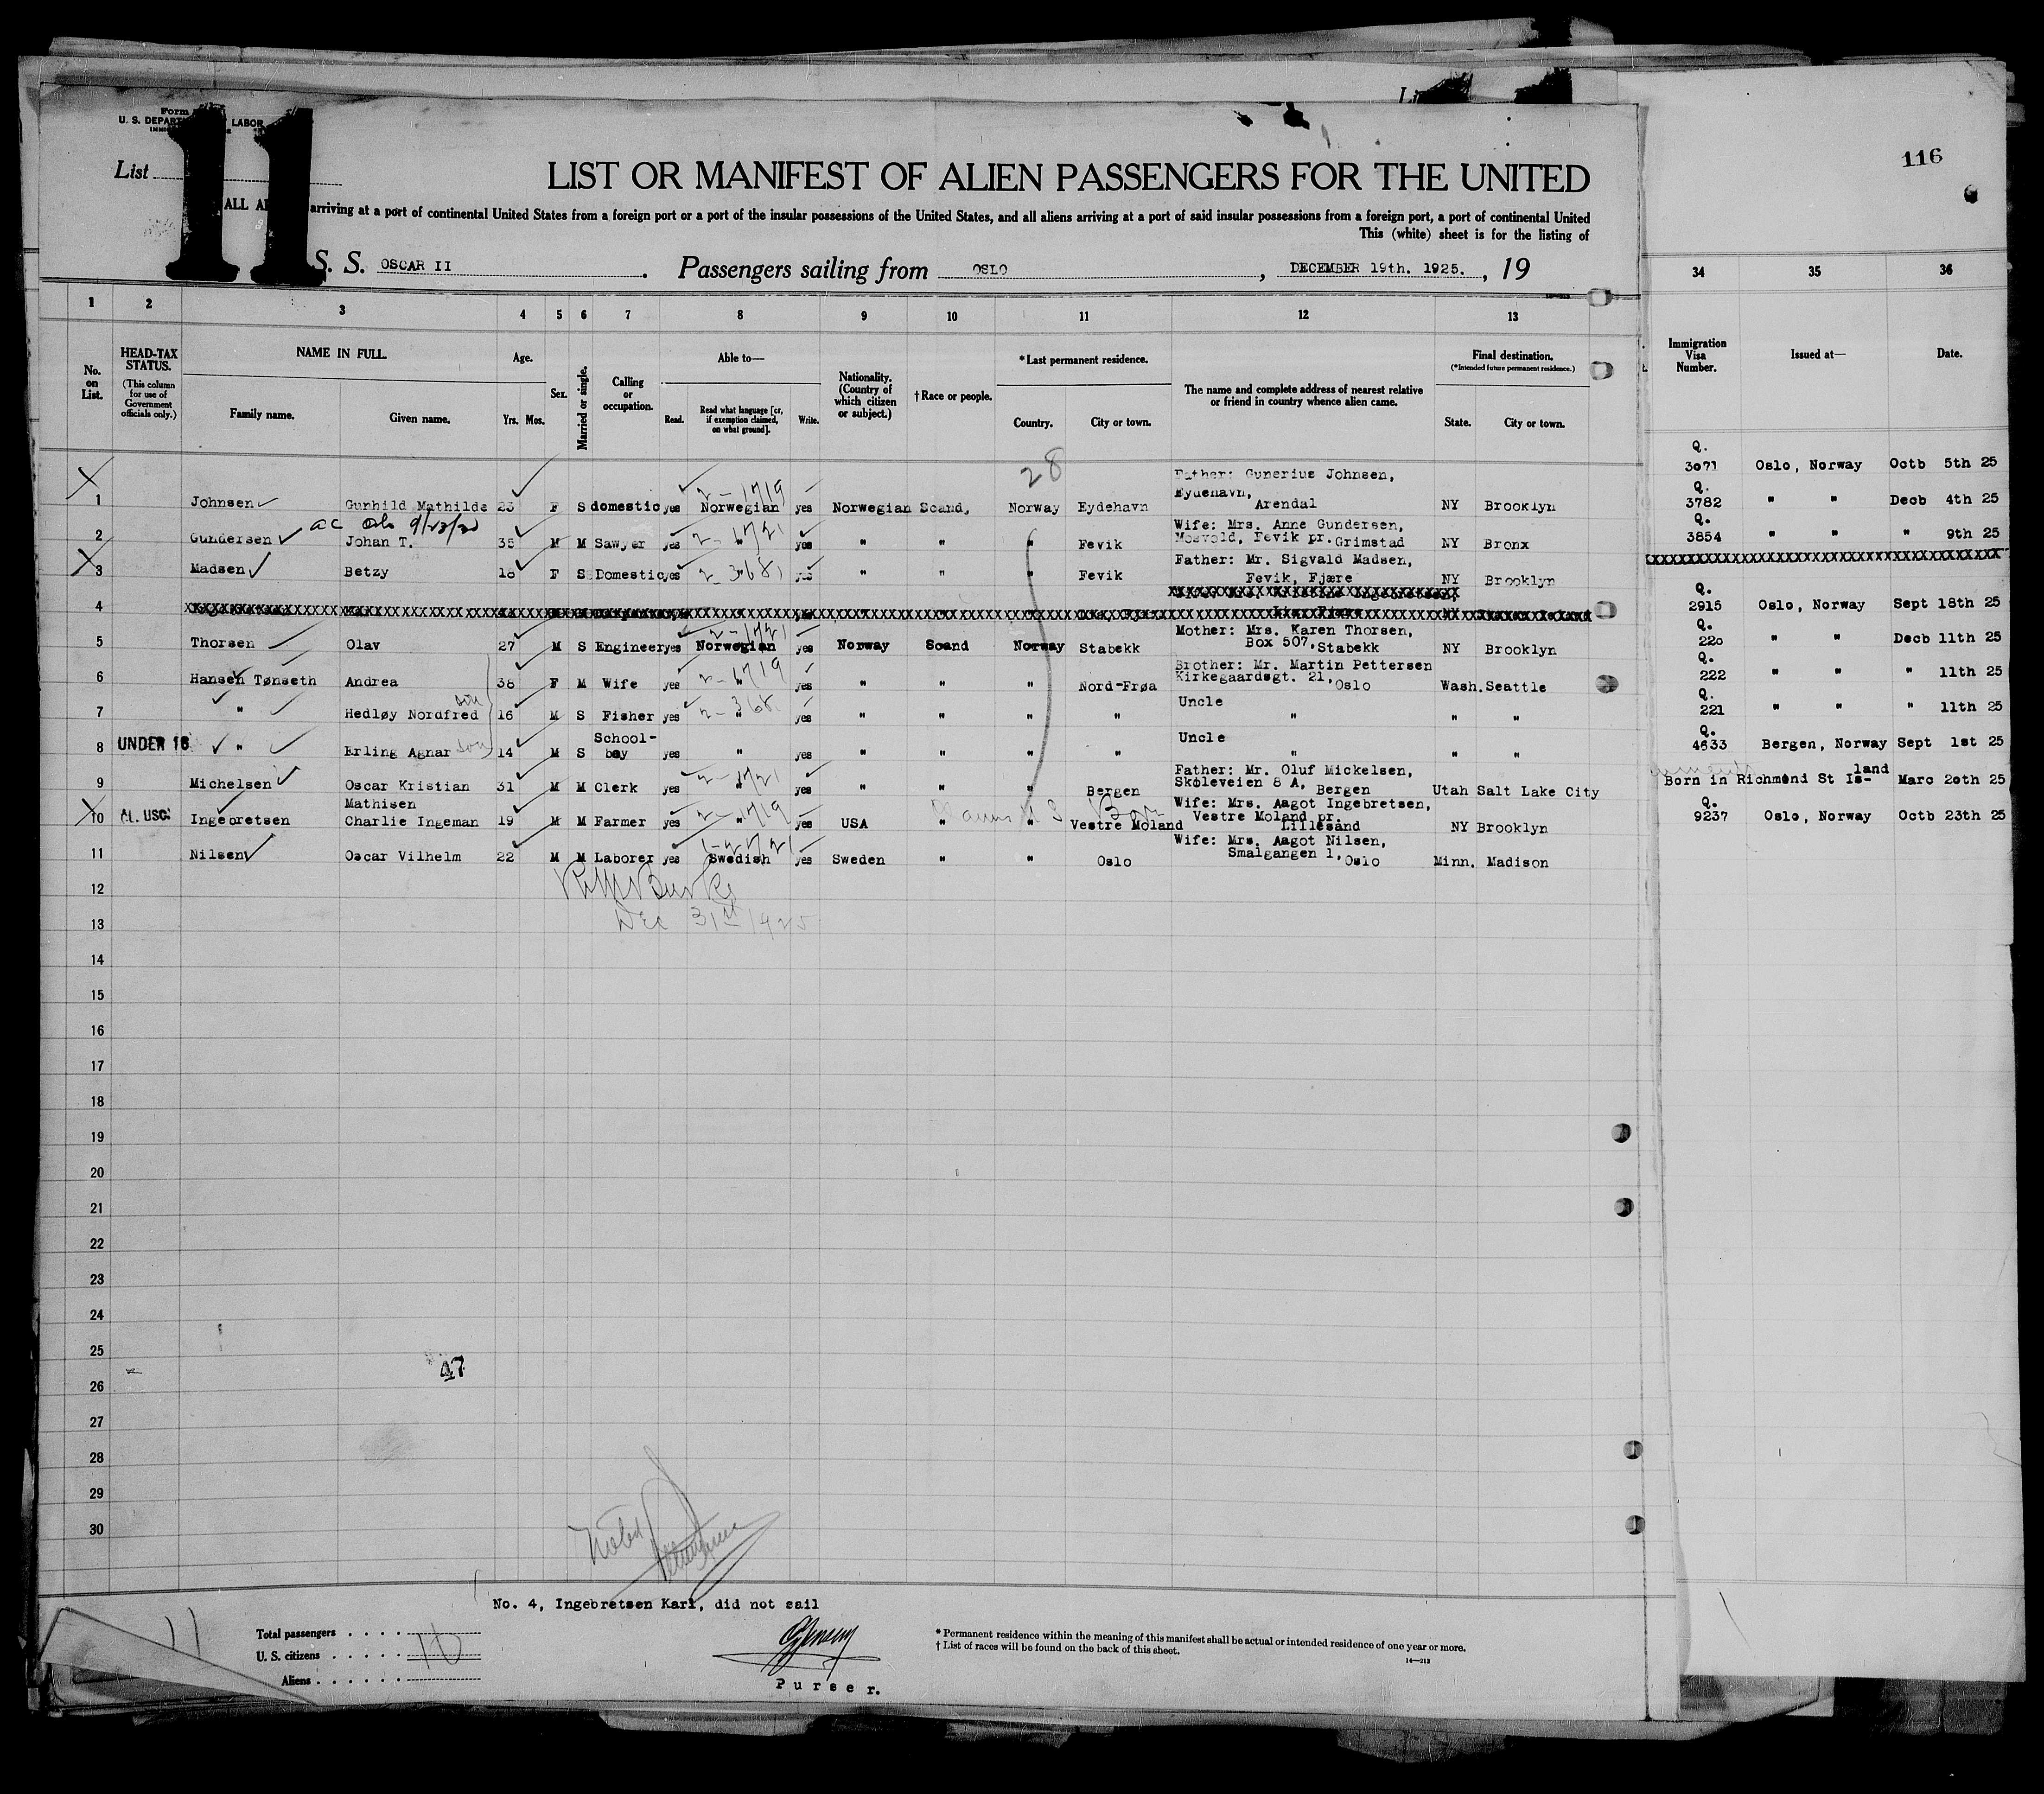 Form
U. S. DEPART LABOR
11
116
List
LIST OR MANIFEST OF ALIEN PASSENGERS FOR THE UNITED
ALL arriving at a port of continental United States from a foreign port or a port of the insular possessions of the United States, and all aliens arriving at a port of said insular possessions from a foreign port, a port of continental United
This (white) sheet is for the listing of
S. S. OSCAR II. Passengers sailing from OSLO, DECEMBER 19th. 1925., 19
1 2 3 4 5 6 7 8 9 10 11 12 13 34 35 36
No. on List.
HEAD-TAX STATUS.
(This column for use of Government officials only.)
NAME IN FULL.
Family name. Given name.
Age.
Yrs. Mos.
Sex.
Married or single.
Calling or occupation.
Able to—
Read. Read what language [or, if exemption claimed, on what ground]. Write.
Nationality. (Country of which citizen or subject.)
† Race or people.
* Last permanent residence.
Country. City or town.
The name and complete address of nearest relative or friend in country whence alien came.
Final destination.
(*Intended future permanent residence.)
State. City or town.
Immigration Visa Number.
Issued at—
Date.
28
1 Johnsen Gunhild Mathilde 23 F S domestic yes Norwegian yes Norwegian Scand, Norway Eydehavn Father: Gunerius Johnsen, Eydehavn, Arendal NY Brooklyn
2-1719
2 Gundersen Johan T. 35 M M Sawyer yes " yes " " " Fevik Wife: Mrs. Anne Gundersen, Mosvold, Fevik pr. Grimstad NY Bronx
2-1721
3 Madsen Betzy 18 F S Domestic yes " yes " " " Fevik Father: Mr. Sigvald Madsen, Fevik, Fjære NY Brooklyn
2-3681
4
5 Thorsen Olav 27 M S Engineer yes Norwegian yes Norway Scand Norway Stabekk Mother: Mrs. Karen Thorsen, Box 507, Stabekk NY Brooklyn
2-1721
6 Hansen Tønseth Andrea 38 F M Wife yes " yes " " " Nord-Frøa Brother: Mr. Martin Pettersen Kirkegaardsgt. 21, Oslo Wash. Seattle
2-1719
7 " Hedløy Nordfred son 16 M S Fisher yes " yes " " " " Uncle " " "
2-368
8 UNDER 16 " Erling Agnar son 14 M S School-boy yes " yes " " " " Uncle " " "
9 Michelsen Oscar Kristian 31 M M Clerk yes " yes " " " Bergen Father: Mr. Oluf Mickelsen, Skoleveien 8 A, Bergen Utah Salt Lake City
2-1721
10 Ingebretsen Mathisen Charlie Ingeman 19 M M Farmer yes " yes USA " " Vestre Moland Wife: Mrs. Aagot Ingebretsen, Vestre Moland pr. Lillesand NY Brooklyn
2-1719
11 Nilsen Oscar Vilhelm 22 M M Laborer yes Swedish yes Sweden " " Oslo Wife: Mrs. Aagot Nilsen, Smalgangen 1, Oslo Minn. Madison
Dec 31st 1925
12
13
14
15
16
17
18
19
20
21
22
23
24
25
26
27
28
29
30
47
Q. 3071 Oslo, Norway Octb 5th 25
Q. 3782 " " Decb 4th 25
Q. 3854 " " " 9th 25
Q. 2915 Oslo, Norway Sept 18th 25
Q. 220 " " Decb 11th 25
Q. 222 " " " 11th 25
Q. 221 " " " 11th 25
Q. 4633 Bergen, Norway Sept 1st 25
Born in Richmond St Is-land Marc 20th 25
Q. 9237 Oslo, Norway Octb 23th 25
No. 4, Ingebretsen Karl, did not sail
Total passengers 11
U. S. citizens
Aliens
10
Purser.
* Permanent residence within the meaning of this manifest shall be actual or intended residence of one year or more.
† List of races will be found on the back of this sheet.
14—213